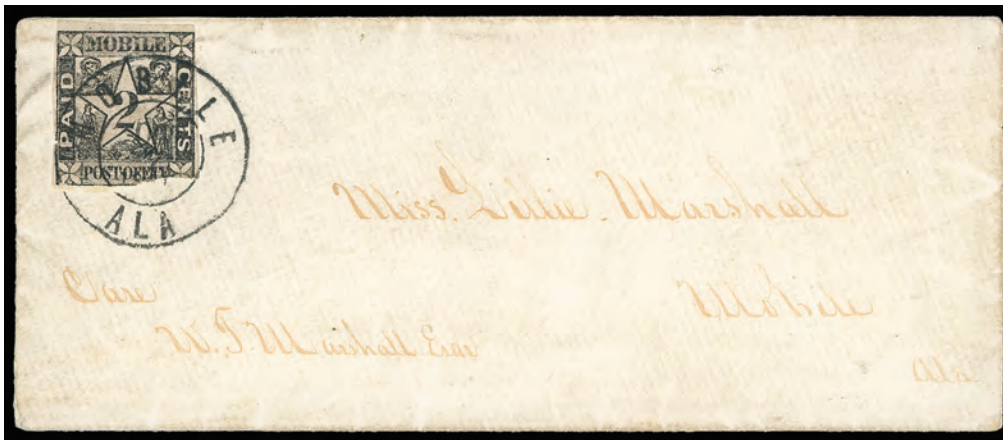 MOBILE
PAID
2
CENTS
POST OFFICE
MOBILE
ALA
Miss. Lillie. Marshall
Care
Mobile
W. T. Marshall Esqr
Ala